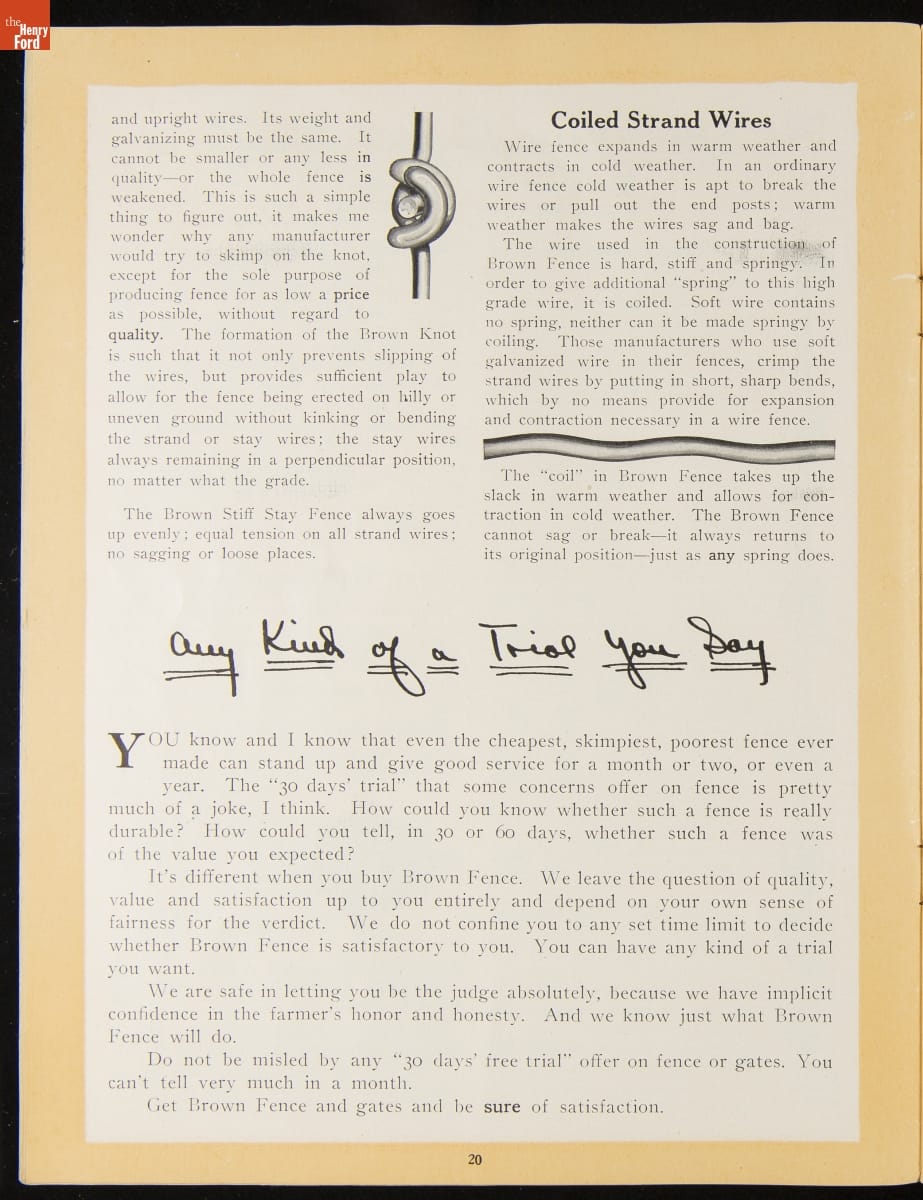 the
Henry
Ford
and upright wires. Its weight and
galvanizing must be the same. It
cannot be smaller or any less in
quality—or the whole fence is
weakened. This is such a simple
thing to figure out, it makes me
wonder why any manufacturer
would try to skimp on the knot,
except for the sole purpose of
producing fence for as low a price
as possible, without regard to
quality. The formation of the Brown Knot
is such that it not only prevents slipping of
the wires, but provides sufficient play to
allow for the fence being erected on hilly or
uneven ground without kinking or bending
the strand or stay wires; the stay wires
always remaining in a perpendicular position,
no matter what the grade.
The Brown Stiff Stay Fence always goes
up evenly; equal tension on all strand wires;
no sagging or loose places.
Coiled Strand Wires
Wire fence expands in warm weather and
contracts in cold weather. In an ordinary
wire fence cold weather is apt to break the
wires or pull out the end posts; warm
weather makes the wires sag and bag.
The wire used in the construction of
Brown Fence is hard, stiff and springy. In
order to give additional "spring" to this high
grade wire, it is coiled. Soft wire contains
no spring, neither can it be made springy by
coiling. Those manufacturers who use soft
galvanized wire in their fences, crimp the
strand wires by putting in short, sharp bends,
which by no means provide for expansion
and contraction necessary in a wire fence.
The "coil" in Brown Fence takes up the
slack in warm weather and allows for con-
traction in cold weather. The Brown Fence
cannot sag or break—it always returns to
its original position—just as any spring does.
Any Kind of a Trial You Say
YOU know and I know that even the cheapest, skimpiest, poorest fence ever
made can stand up and give good service for a month or two, or even a
year. The "30 days' trial" that some concerns offer on fence is pretty
much of a joke, I think. How could you know whether such a fence is really
durable? How could you tell, in 30 or 60 days, whether such a fence was
of the value you expected?
It's different when you buy Brown Fence. We leave the question of quality,
value and satisfaction up to you entirely and depend on your own sense of
fairness for the verdict. We do not confine you to any set time limit to decide
whether Brown Fence is satisfactory to you. You can have any kind of a trial
you want.
We are safe in letting you be the judge absolutely, because we have implicit
confidence in the farmer's honor and honesty. And we know just what Brown
Fence will do.
Do not be misled by any "30 days' free trial" offer on fence or gates. You
can't tell very much in a month.
Get Brown Fence and gates and be sure of satisfaction.
20